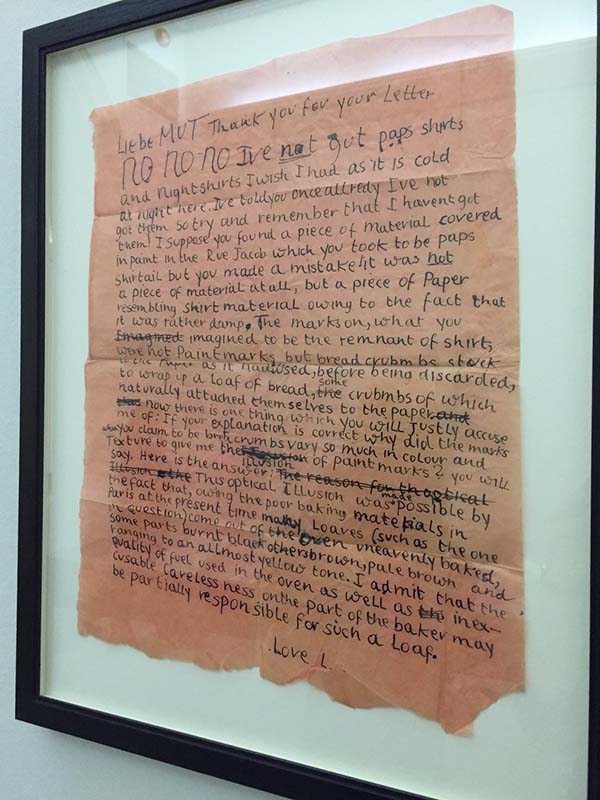 Liebe MUT Thank you for your Letter
NO NO NO I've not got paps shirts
and nightshirts I wish I had as it is cold
at night here. I've told you once allready I've not
got them so try and remember that I havent got
them! I suppose you found a piece of material covered
in paint in the Rue Jacob which you took to be paps
shirtail but you made a mistake! it was not
a piece of material at all, but a piece of Paper
resembling shirt material owing to the fact that
it was rather damp. The marks on, what you
Imagined imagined to be the remnant of shirt,
were not Paintmarks, but bread crubmbs stuck
to the Paper as it had used, before being discarded,
to wrap up a loaf of bread, the some crubmbs of which
naturally attached themselves to the paper and
this now there is one thing which you will justly accuse
me of: If your explanation is correct why did the marks
when you claim to be bread crumbs vary so much in colour and
Texture to give me the illusion of paintmarks? you will
say. Here is the answer: The reason for the optical
Illusion This optical Illusion was made possible by
the fact that, owing the poor baking materials in
Paris at the present time many Loaves (such as the one
in question) come out of the oven unevenly baked,
some parts burnt black others brown, pale brown and
ranging to an allmost yellow tone. I admit that the
quality of fuel used in the oven as well as the inex-
cusable careless ness on the part of the baker may
be partially responsible for such a Loaf.
Love L.